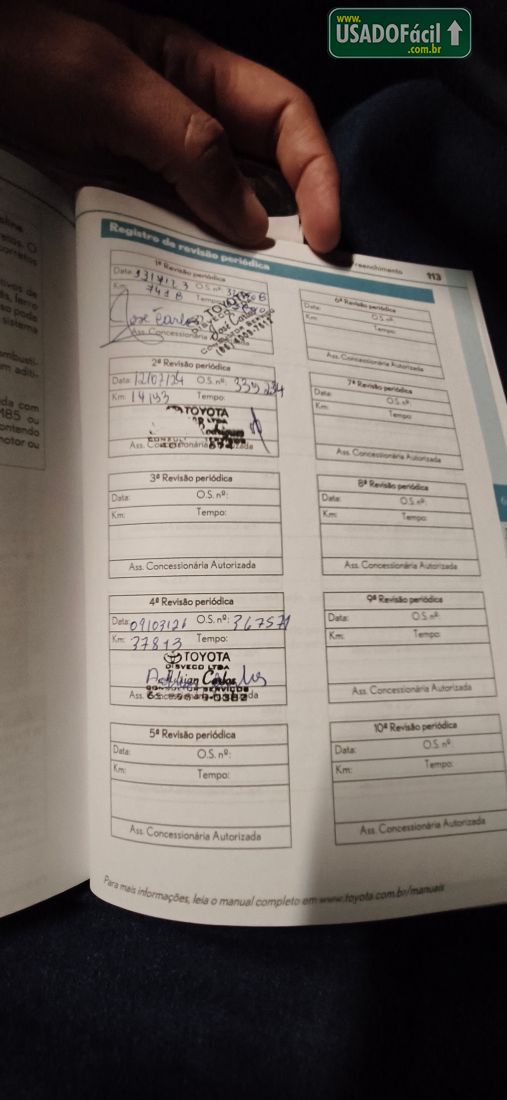 www.
USADOFácil
.com.br
Registro da revisão periódica
preenchimento 113
1ª Revisão periódica
Data: O.S. nº:
Km: 7418 Tempo:
José Carlos
TOYOTA
DISVECO
José Carlos
Ass. Concessionária
2ª Revisão periódica
Data: 12/07/24 O.S. nº: 339234
Km: 14193 Tempo:
TOYOTA
Ass.
3ª Revisão periódica
Data: O.S. nº:
Km: Tempo:
Ass. Concessionária Autorizada
4ª Revisão periódica
Data: 09/03/26 O.S. nº: 367571
Km: 37813 Tempo:
TOYOTA
DISVECO LTDA
Adrian Carlos
CONSULTOR SERVIÇOS
Ass.
5ª Revisão periódica
Data: O.S. nº:
Km: Tempo:
Ass. Concessionária Autorizada
6ª Revisão periódica
Data: O.S. nº:
Km: Tempo:
Ass. Concessionária Autorizada
7ª Revisão periódica
Data: O.S. nº:
Km: Tempo:
Ass. Concessionária Autorizada
8ª Revisão periódica
Data: O.S. nº:
Km: Tempo:
Ass. Concessionária Autorizada
9ª Revisão periódica
Data: O.S. nº:
Km: Tempo:
Ass. Concessionária Autorizada
10ª Revisão periódica
Data: O.S. nº:
Km: Tempo:
Ass. Concessionária Autorizada
Para mais informações, leia o manual completo em www.toyota.com.br/manuais